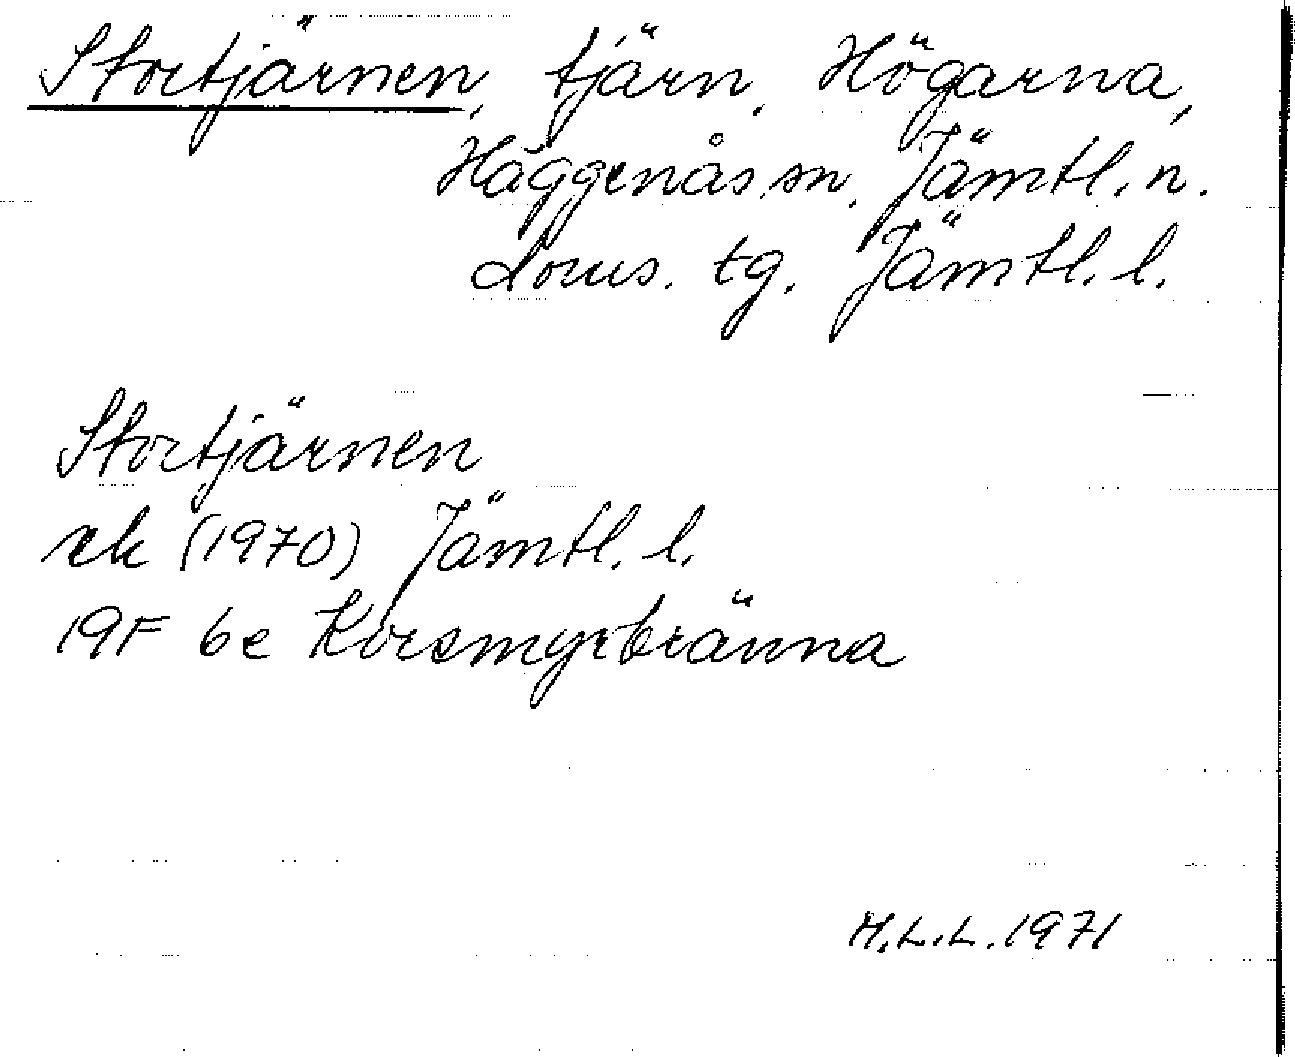 Stortjärnen, tjärn, Högarna,
Häggenås sn. Jämtl. n.
doms. tg. Jämtl. l.
Stortjärnen
ek (1970) Jämtl. l.
19F 6e Korsmyrbränna
M.L.L. 1971